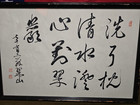 洗耳枕
清水澄
心對翠
巖